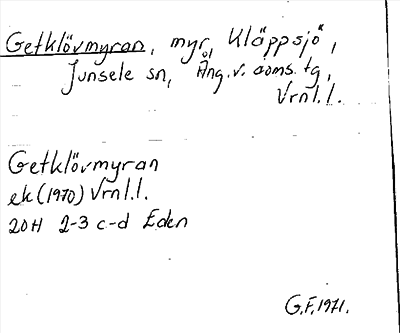 Getklövmyran, myr, Kläppsjö,
Junsele sn, Ång. v. doms. tg,
Vrnl.l.
Getklövmyran
ek (1970) Vrnl.l.
20H 2-3 c-d Eden
G.F. 1971.